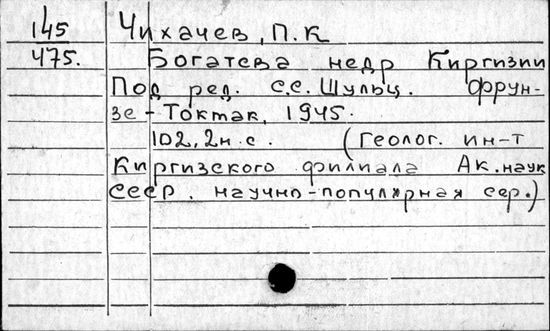 145 Чихачев, П.К
475. Богатева недр Киргизии
Под ред. С.С. Шульц. Фрун-
зе - Токмак, 1945.
102, 2н. с. (Геолог. ин-т
Киргизского филиала Ак. наук
СССР. научно-популярная сер.)